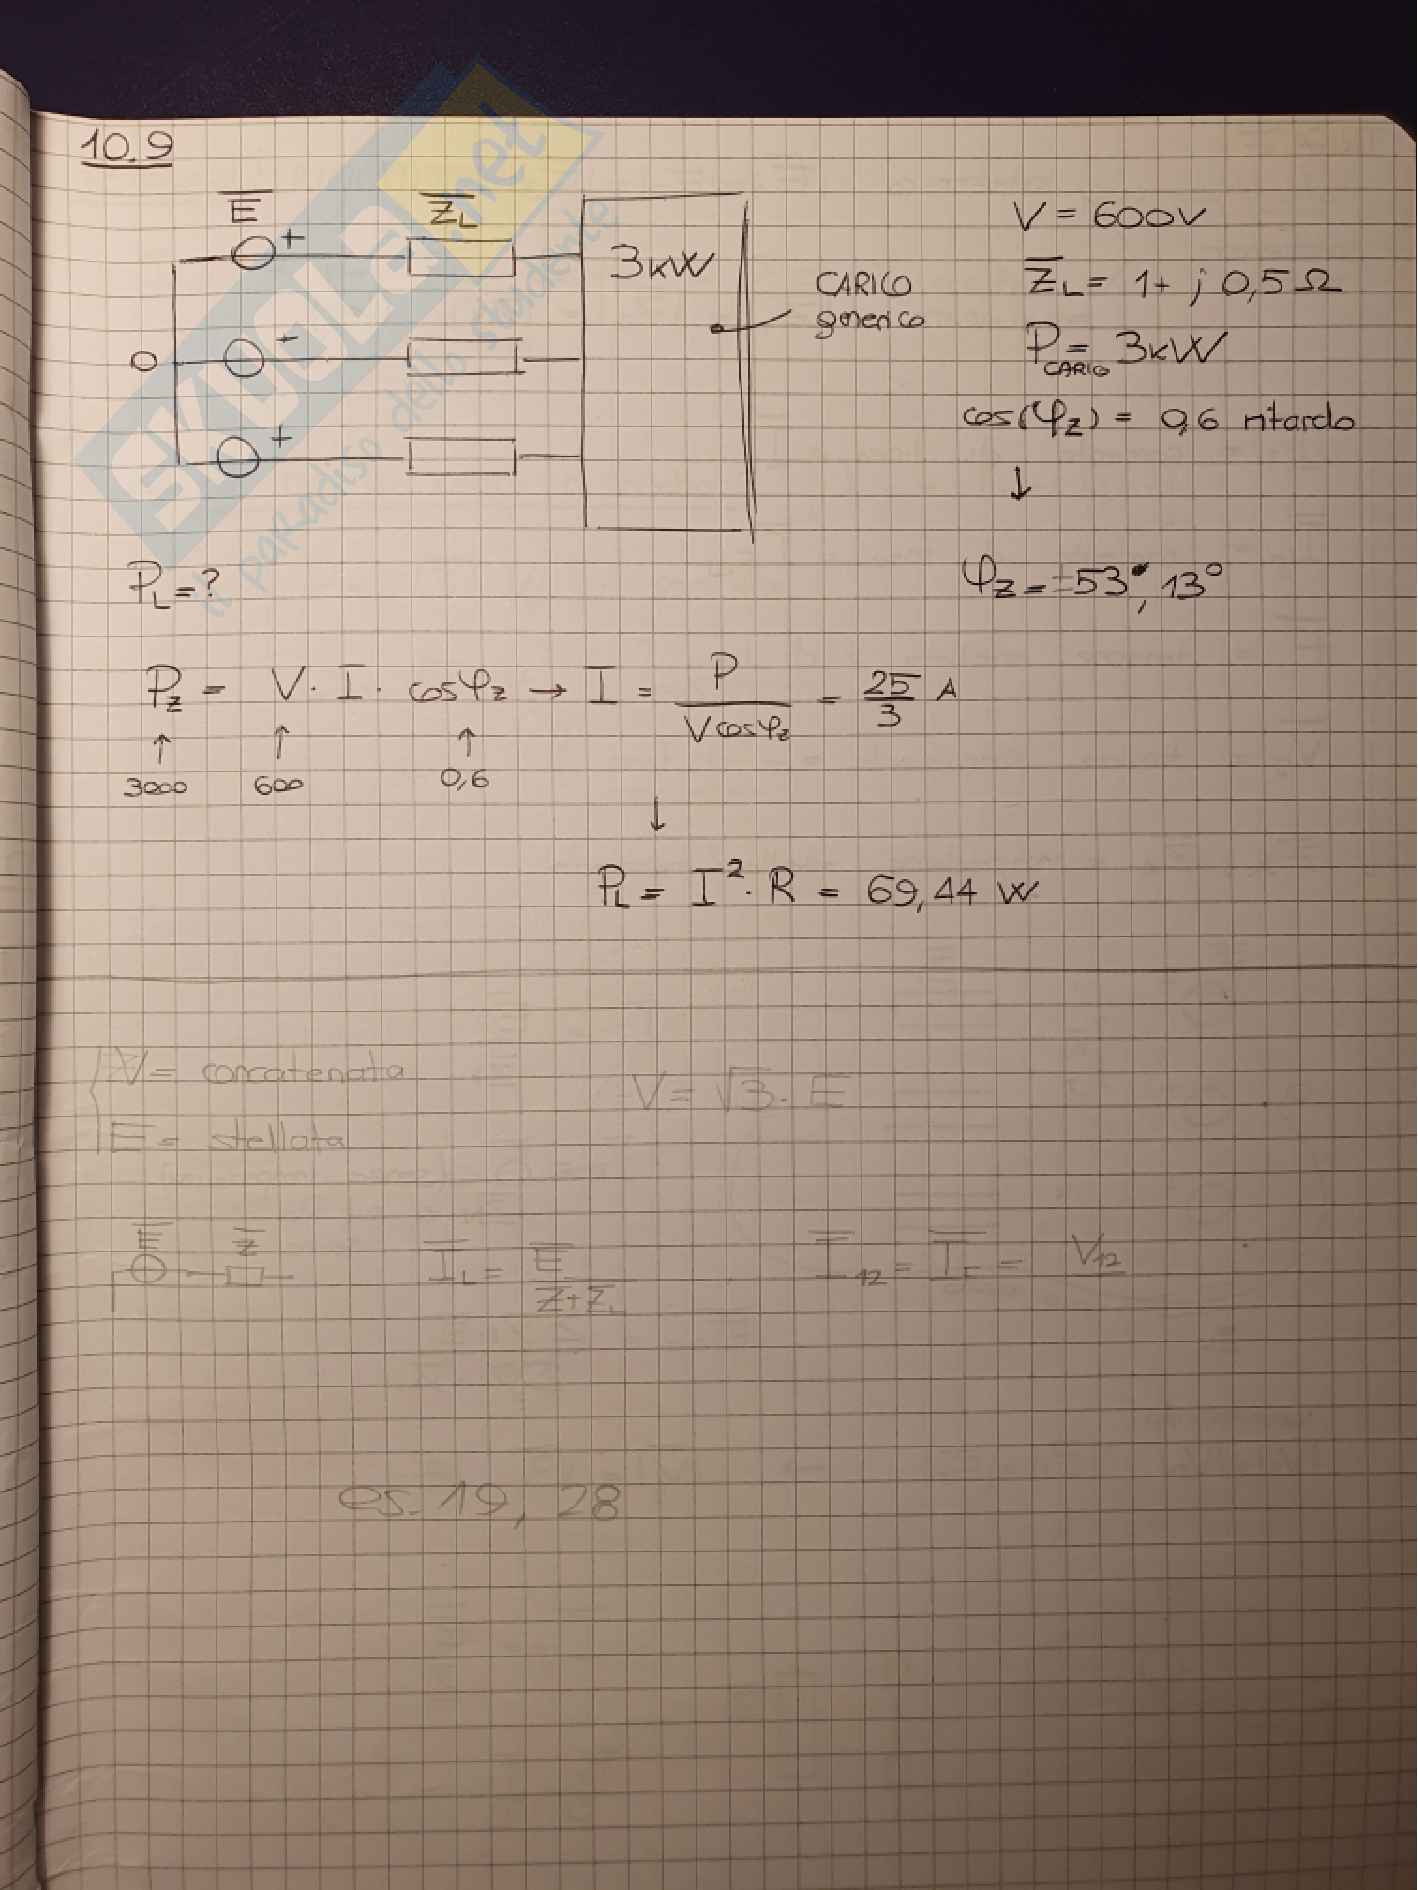 10.9
E ZL
+ 3kW
+
O
+
CARICO
generico
V = 600V
ZL = 1 + j 0,5 Ω
P CARICO = 3kW
cos(φz) = 0,6 ritardo
↓
φz = 53, 13°
PL = ?
Pz = V · I · cosφz → I = P / V cosφz = 25/3 A
↑ ↑ ↑
3000 600 0,6
↓
PL = I² · R = 69,44 W
V = concatenata
E = stellata
V = √3 · E
E Z
IL = E / Z + ZL
I12 = = V12
es. 19, 28
SKUOLA.net
il paradiso dello studente